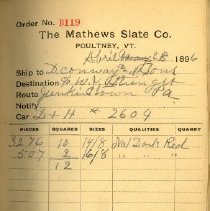 Order No. B119
The Mathews Slate Co.
POULTNEY, VT.
April 1896
Ship to D. Conway & Sons
Destination
Route Jenkintown Pa
Notify
Car D + H # 2609
PIECES SQUARES SIZES QUALITIES QUANT.
3286 10 14/8 Dark Red
507 2 16/8 " " "
12